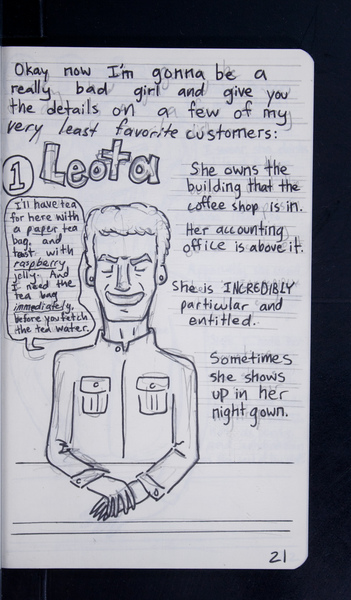 Okay now I'm gonna be a
really bad girl and give you
the details on a few of my
very least favorite customers:
1
Leota
I'll have tea
for here with
a paper tea
bag, and
toast with
raspberry
jelly. And
I need the
tea bag
immediately,
before you fetch
the tea water.
She owns the
building that the
coffee shop is in.
Her accounting
office is above it.
She is INCREDIBLY
particular and
entitled.
Sometimes
she shows
up in her
nightgown.
21